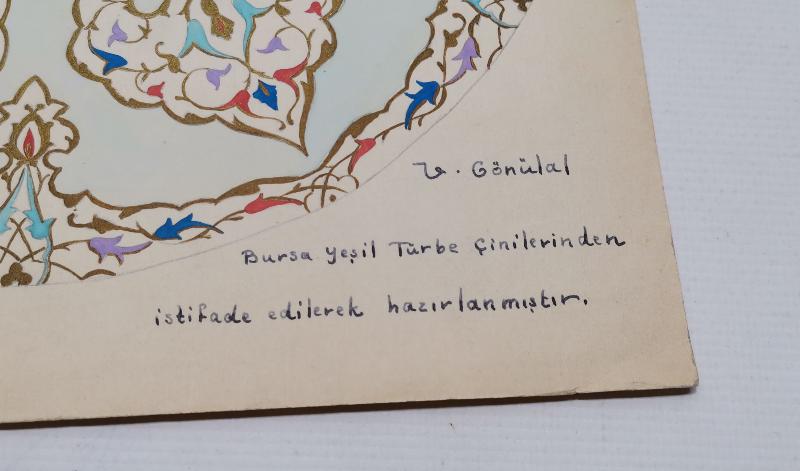 V. Gönülal
Bursa Yeşil Türbe Çinilerinden
istifade edilerek hazırlanmıştır.